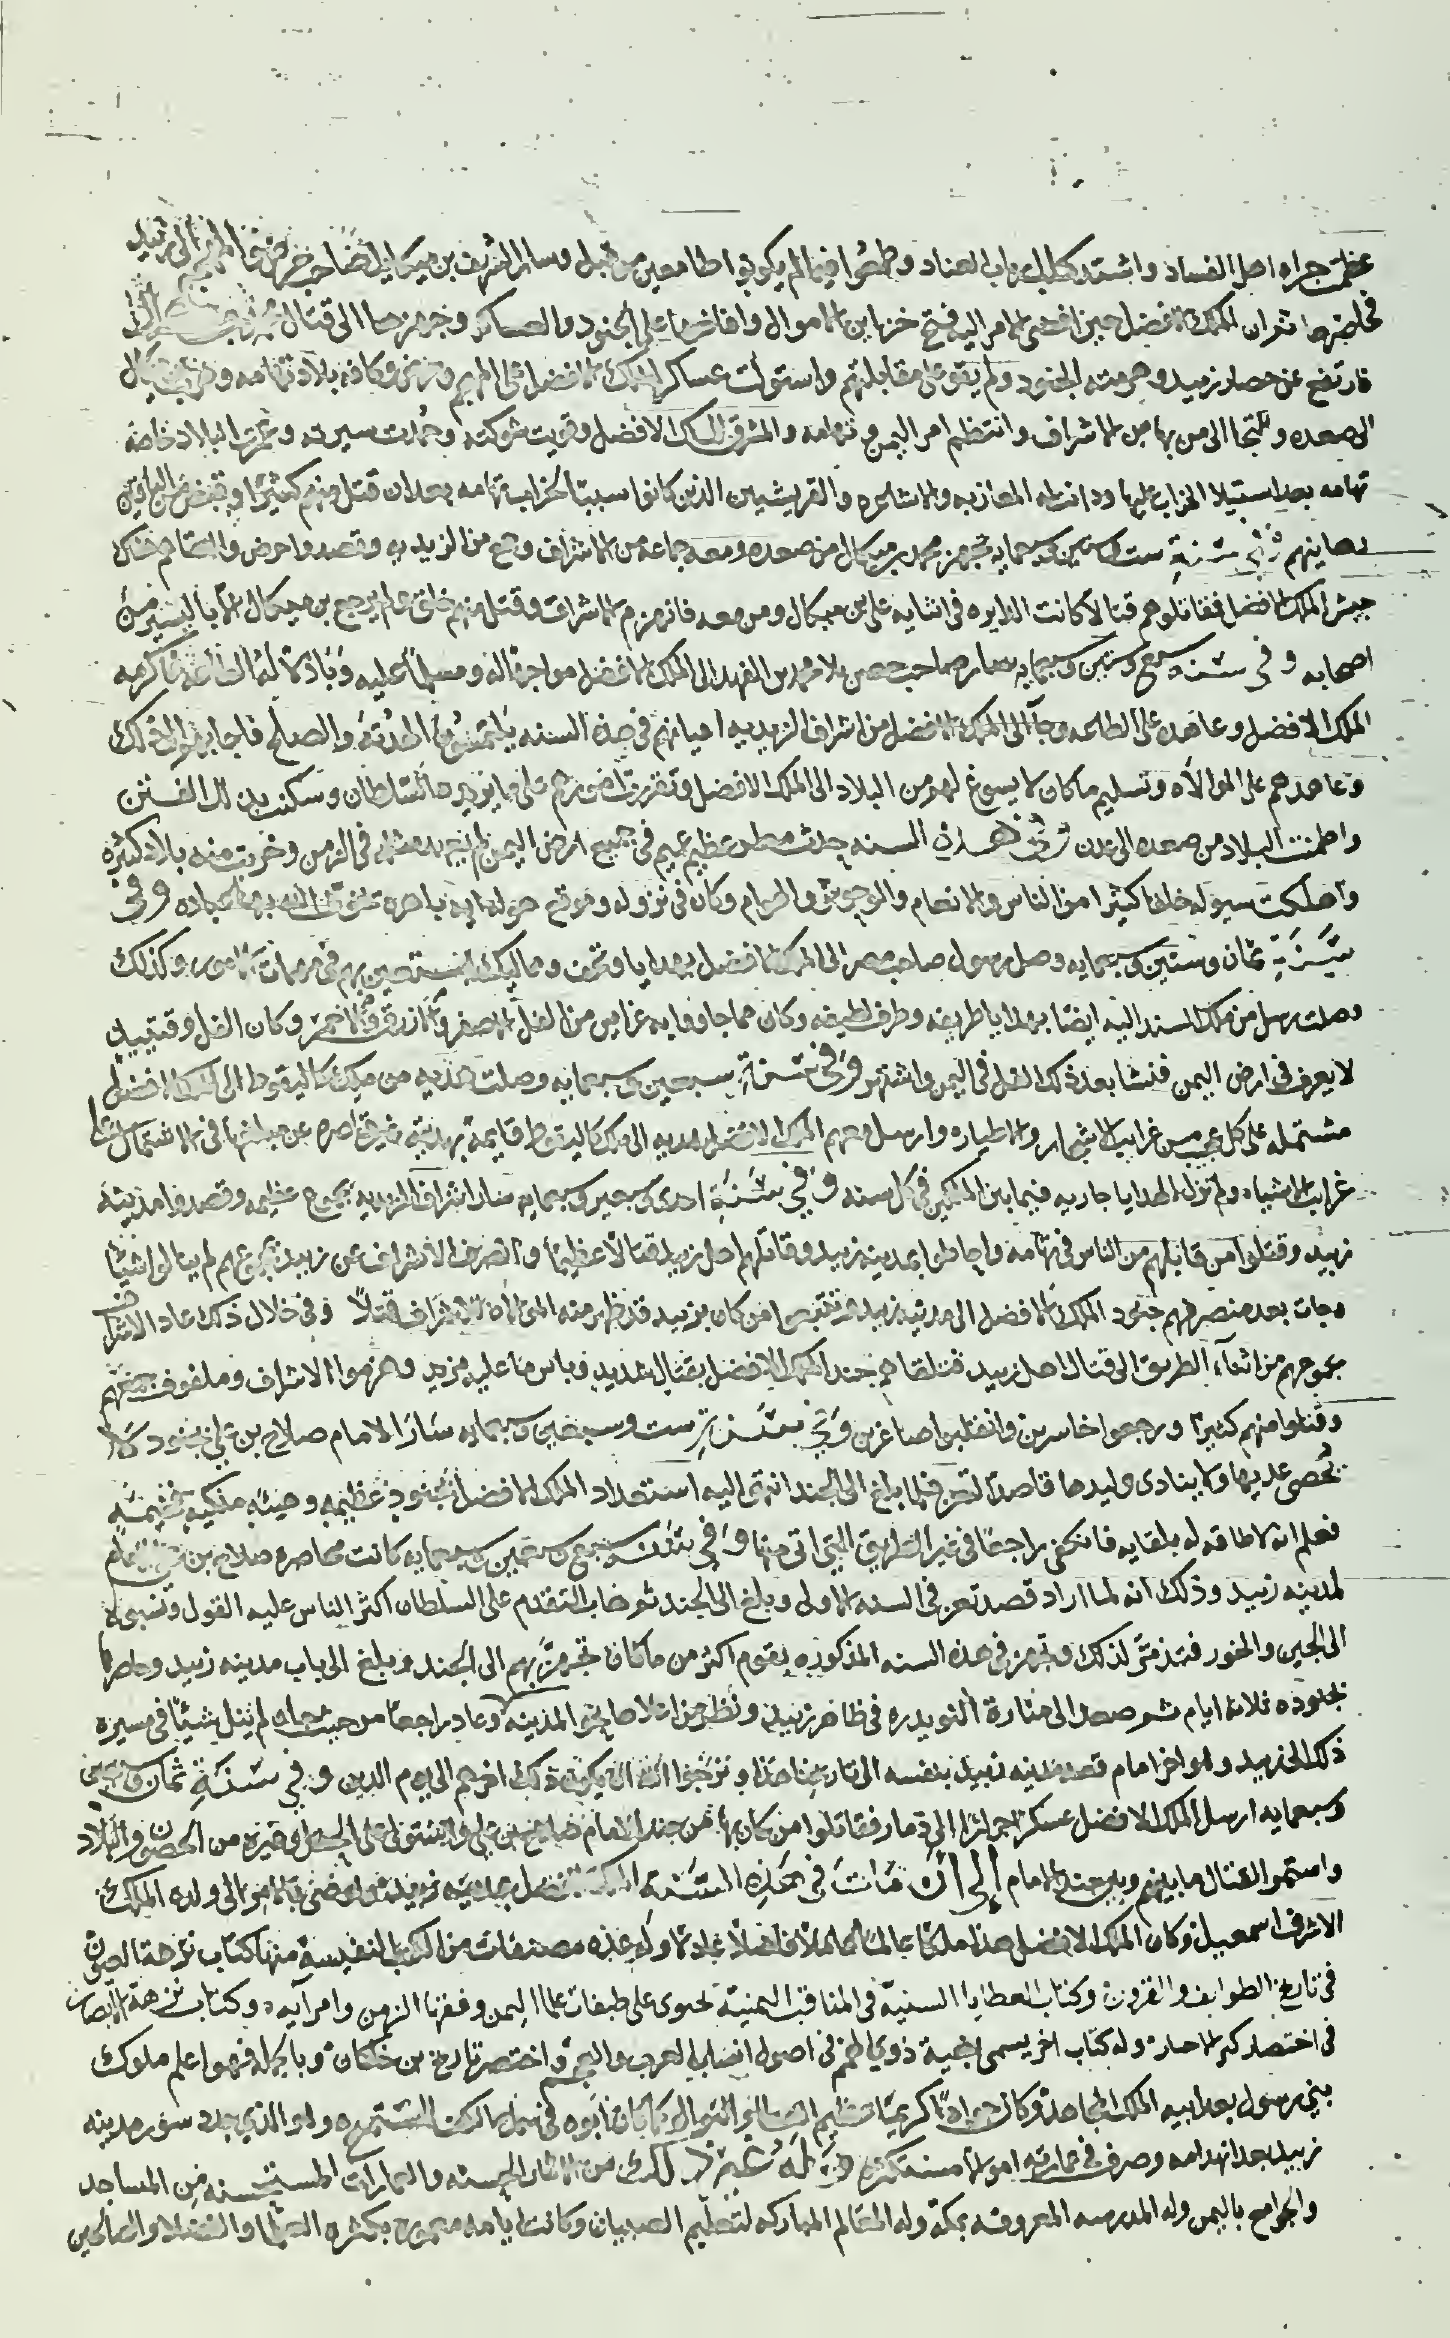 عظمت جراه اهل الفساد واشتد كلب ارباب العناد وطمعوا فيما لم يكونوا طامعين من قبل وسار الشريف بن ميكايل صاحب حرض من المهجم الى زبيد
فحاصرها ثم ان الملك الافضل حين افضى الامر اليه فتح خزاين الاموال وافاضها على الجنود والعساكر وجهزها الى قتال
فارتفع عن حصار زبيد وهزمته الجنود ولم يقو على مقابلتهم واستولت عساكر الملك الافضل على المهجم وحرض وكافه بلاد تهامه وهرب بن ميكال
الى صعده والتجا الى من بها من الاشراف وانتظم امر اليمن وتهامه والمشرق للملك الافضل وقويت شوكته وحمدت سيرته وعمرت البلاد خاصه
تهامه بعد استيلا الخراب عليها ودانت له المعازبه والاشاعره والقريشيين الذين كانوا سببا لخراب تهامه بعد ان قتل منهم كثيرا وقبض من الباقين
رهاينهم وفي سنة ست وستين وسبعمايه تجهز محمد بن ميكال من صعده ومعه جماعه من الاشراف وجمع من الزيديه وقصدوا حرض والتقاهم هناك
جيش الملك الافضل فقاتلوهم قتالا كانت الدايره في اثنايه على ابن ميكال ومن معه فانهزم الاشراف وقتل منهم خلق ولم يرجع بن ميكال الا باليسير من
اصحابه وفي سنة سبع وستين وسبعمايه سار صاحب حصن محمد بن الفهد الى الملك الافضل مواجها له ومسلما عليه وباذلا له الطاعة فاكرمه
الملك الافضل وعاهده على الطاعه وجآ الى الملك الافضل من اشراف الزيديه اعيانهم في هذه السنه يلتمسون الهدنة والصلح فاجابهم الى ذلك
وعاهدهم على الموالاه وتسليم ما كان لا يسوغ لهم من البلاد الى الملك الافضل وتقررت امورهم على ما يريد السلطان وسكنت بذلك الفتن
واطمنت البلاد من صعده الى عدن وفي هذه السنه حدث مطر عظيم عميم في جميع ارض اليمن لم يعهد مثله في الزمن وخربت منه بلاد كثيره
واهلكت سيوله خلقا كثيرا من الناس والانعام والوحوش والهوام وكان في نزوله وموقع هوله ايه باهره خوف الله بها عباده وفي
سنة ثمان وستين وسبعمايه وصل رسول صاحب مصر الى الملك الافضل بهدايا وتحف ومماليك يستعين بهم في مهمات الامور وكذلك
وصلت رسل من ملك السند اليه ايضا بهدايا طريفه وطرف لطيفه وكان مما جاؤوا به غرايس من الفل الاصفر والازرق والاحمر وكان الفل وقتييذ
لا يعرف في ارض اليمن فنشا بعد ذلك الفل في اليمن واشتهر وفي سنة سبعين وسبعمايه وصلت هديه من ملك كاليقوط الى الملك الافضل
مشتمله على كل عجيب من غرايب الاشجار والاطيار وارسل معهم الملك الافضل بهديه الى ملك كاليقوط قايمة بهديته غير قاصره عن مبلغها في الاشتمال على
غرايب الاشياء ولم تزل الهدايا جاريه فيما بين الملكين في كل سنه وفي سنة احدى وسبعين وسبعمايه سار اشراف الزيديه بجموع عظيمه وقصدوا مدينة
زبيد وقتلوا من قابلهم من الناس في تهامة واحاطوا بمدينه زبيد وقاتلهم اهل زبيد قتالا عظيما وانصرف الاشراف عن زبيد بجموعهم لم ينالوا شيئا
وجات بعد منصرفهم جنود الملك الافضل الى مدينه زبيد فتتبعوا من كان بزبيد قد ظهر منه الاشراف قتلا وفي خلال ذلك عاد الاشراف
بجموعهم من اثناء الطريق الى قتال اهل زبيد فتلقاهم جند الملك الافضل بقتال شديد وباس ما عليه مزيد وهزموا الاشراف
وقتلوا منهم كثيرا ورجعوا خاسرين وانقلبوا صاغرين وفي سنة ست وسبعين وسبعمايه سار الامام صلاح بن علي بجنود لا
تحصى عديها ولا ينادى وليدها قاصدا لتعز فلما بلغ الى الجند انتهى اليه استعداد الملك الافضل بجنود عظيمه وهيئه ملكيه فخيمة
فعلم انه لا طاقه له بلقايه فانكفى راجعا في غير الطريق التي اتى منها وفي سنة سبع وسبعين وسبعمايه كانت محاصره صلاح بن علي الامام
لمدينه زبيد وذلك انه لما اراد قصد تعز في السنه الاولى وبلغ الى الجند ثم هاب التقدم على السلطان اكثر الناس عليه القول ونسبوه
الى الجبن والخور فتذمر لذلك وتجهز في هذه السنه المذكوره بقوم اكثر من ما كان تجهز بهم الى الجند وبلغ الى باب مدينه زبيد وحاصرها
بجنوده ثلاثة ايام ثم صعد الى منارة النويدره في ظاهر زبيد ونظر من اعلاها نحو المدينه وعاد راجعا من حيث جاء لم ينل شيئا في مسيره
ذلك الى زبيد وهو اخر امام قصد مدينه زبيد بنفسه الى تاريخنا هذا ونرجوا الله ان يكون ذلك اخرهم الى يوم الدين وفي سنة ثمان وسبعين
وسبعمايه ارسل الملك الافضل عسكرا جرارا الى ذمار فقاتلوا من كان بها من جند الامام صلاح بن علي واستولى على وغيره من الحصون والبلاد
واستمر القتال ما بينهم وبين جند الامام إلى أن مات في هذه السنه الملك الافضل بمدينه زبيد وافضى بالامر الى ولده الملك
الاشرف اسمعيل وكان الملك الافضل هذا ملكا عالما عاملا فاضلا عادلا وله عده مصنفات من الكتب النفيسة منها كتاب نزهة العيون
في تاريخ الطوايف والقرون وكتاب العطايا السنيه في المناقب اليمنية يحتوى على طبقات علما اليمن وفقها الزمن وامرآيه وكتاب نزهة الابصار
في اختصار كنز الاخبار وله كتاب اخر يسمى بغية ذوي الهمم في اصول انساب العرب والعجم واختصر تاريخ بن خلكان وبالجمله فهو اعلم ملوك
بني رسول بعد ابيه الملك المجاهد وكان جوادا كريما عظيم العطا والنوال كما كان ابوه وهو الذي جدد سور مدينه
زبيد بعد انهدامه وصرف في عمارته اموالا مستكثره وله غير ذلك من الاثار الحسنه والعمارات المستحسنه من المساجد
والجوامع باليمن وله المدرسه المعروفه بمكة وله المعالم المباركه لتعليم الصبيان وكانت ايامه معموره بكثره العلما والفضلا والصالحين